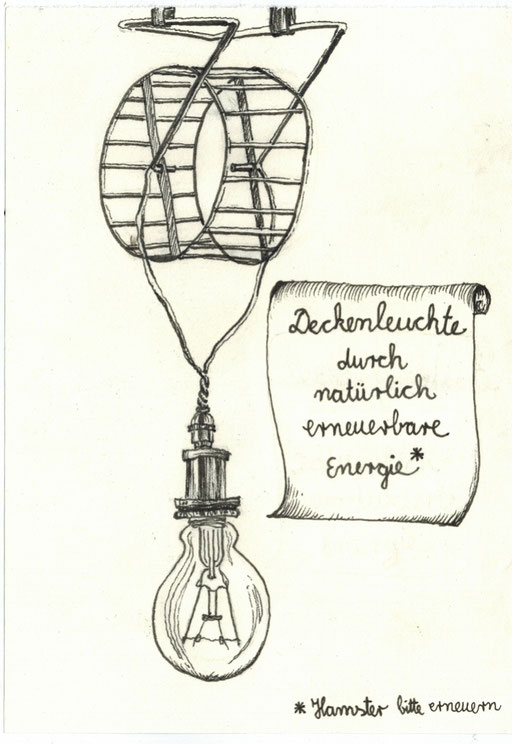 Deckenleuchte
durch
natürlich
erneuerbare
Energie*
* Hamster bitte erneuern